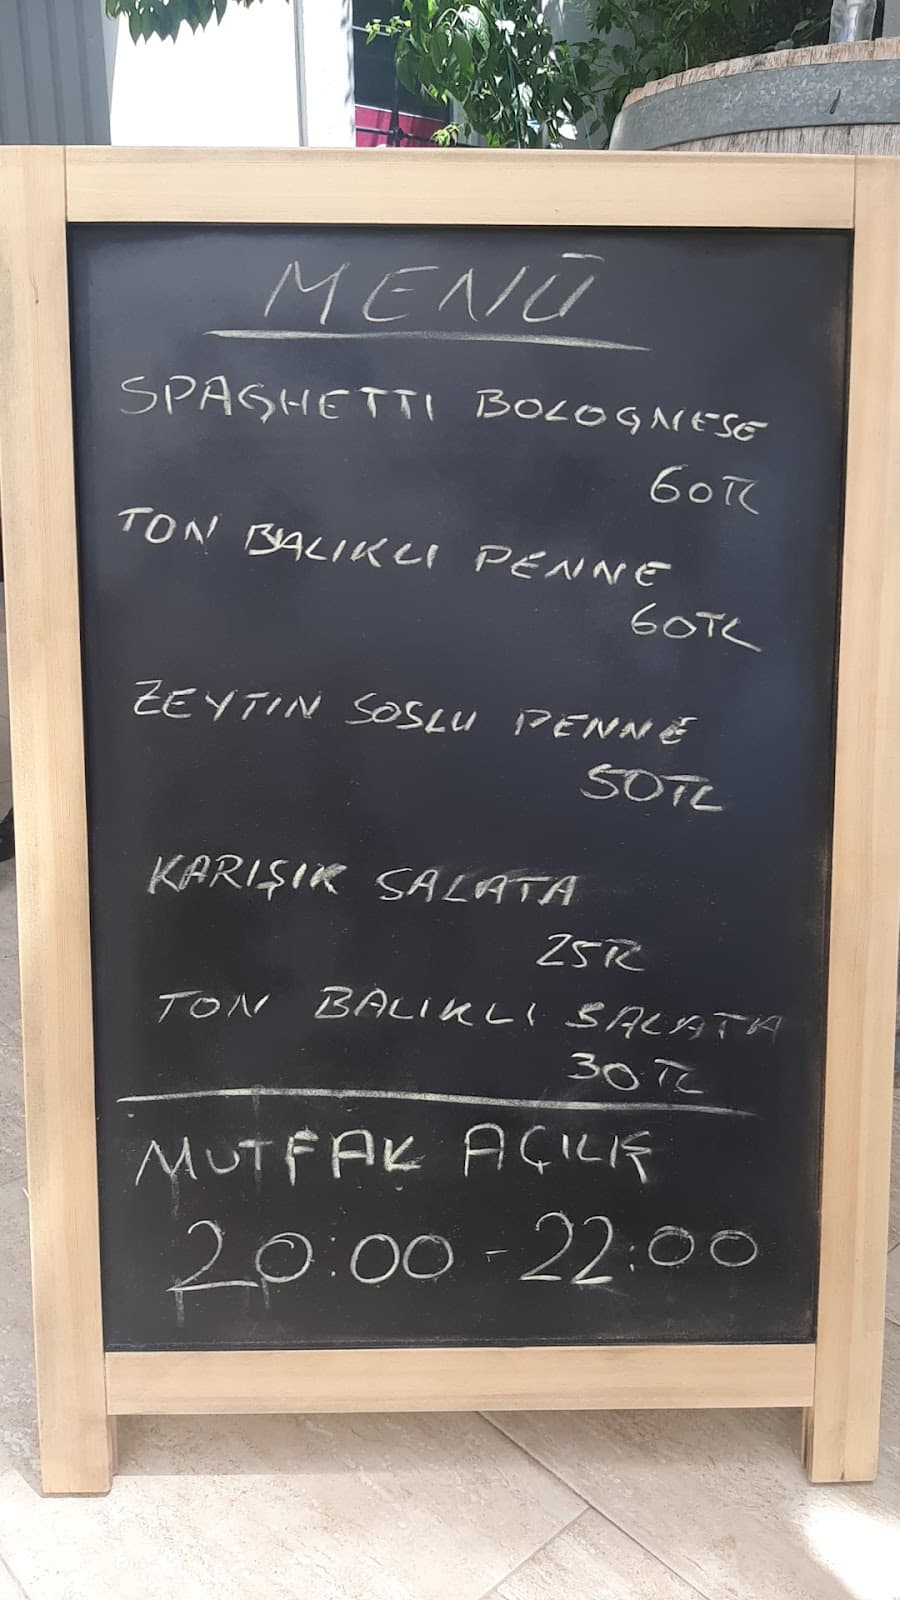 MENÜ
SPAGHETTI BOLOGNESE
60TL
TON BALIKLI PENNE
60TL
ZEYTIN SOSLU PENNE
50TL
KARIŞIK SALATA
25TL
TON BALIKLI SALATA
30TL
MUTFAK AÇILIŞ
20:00 - 22:00